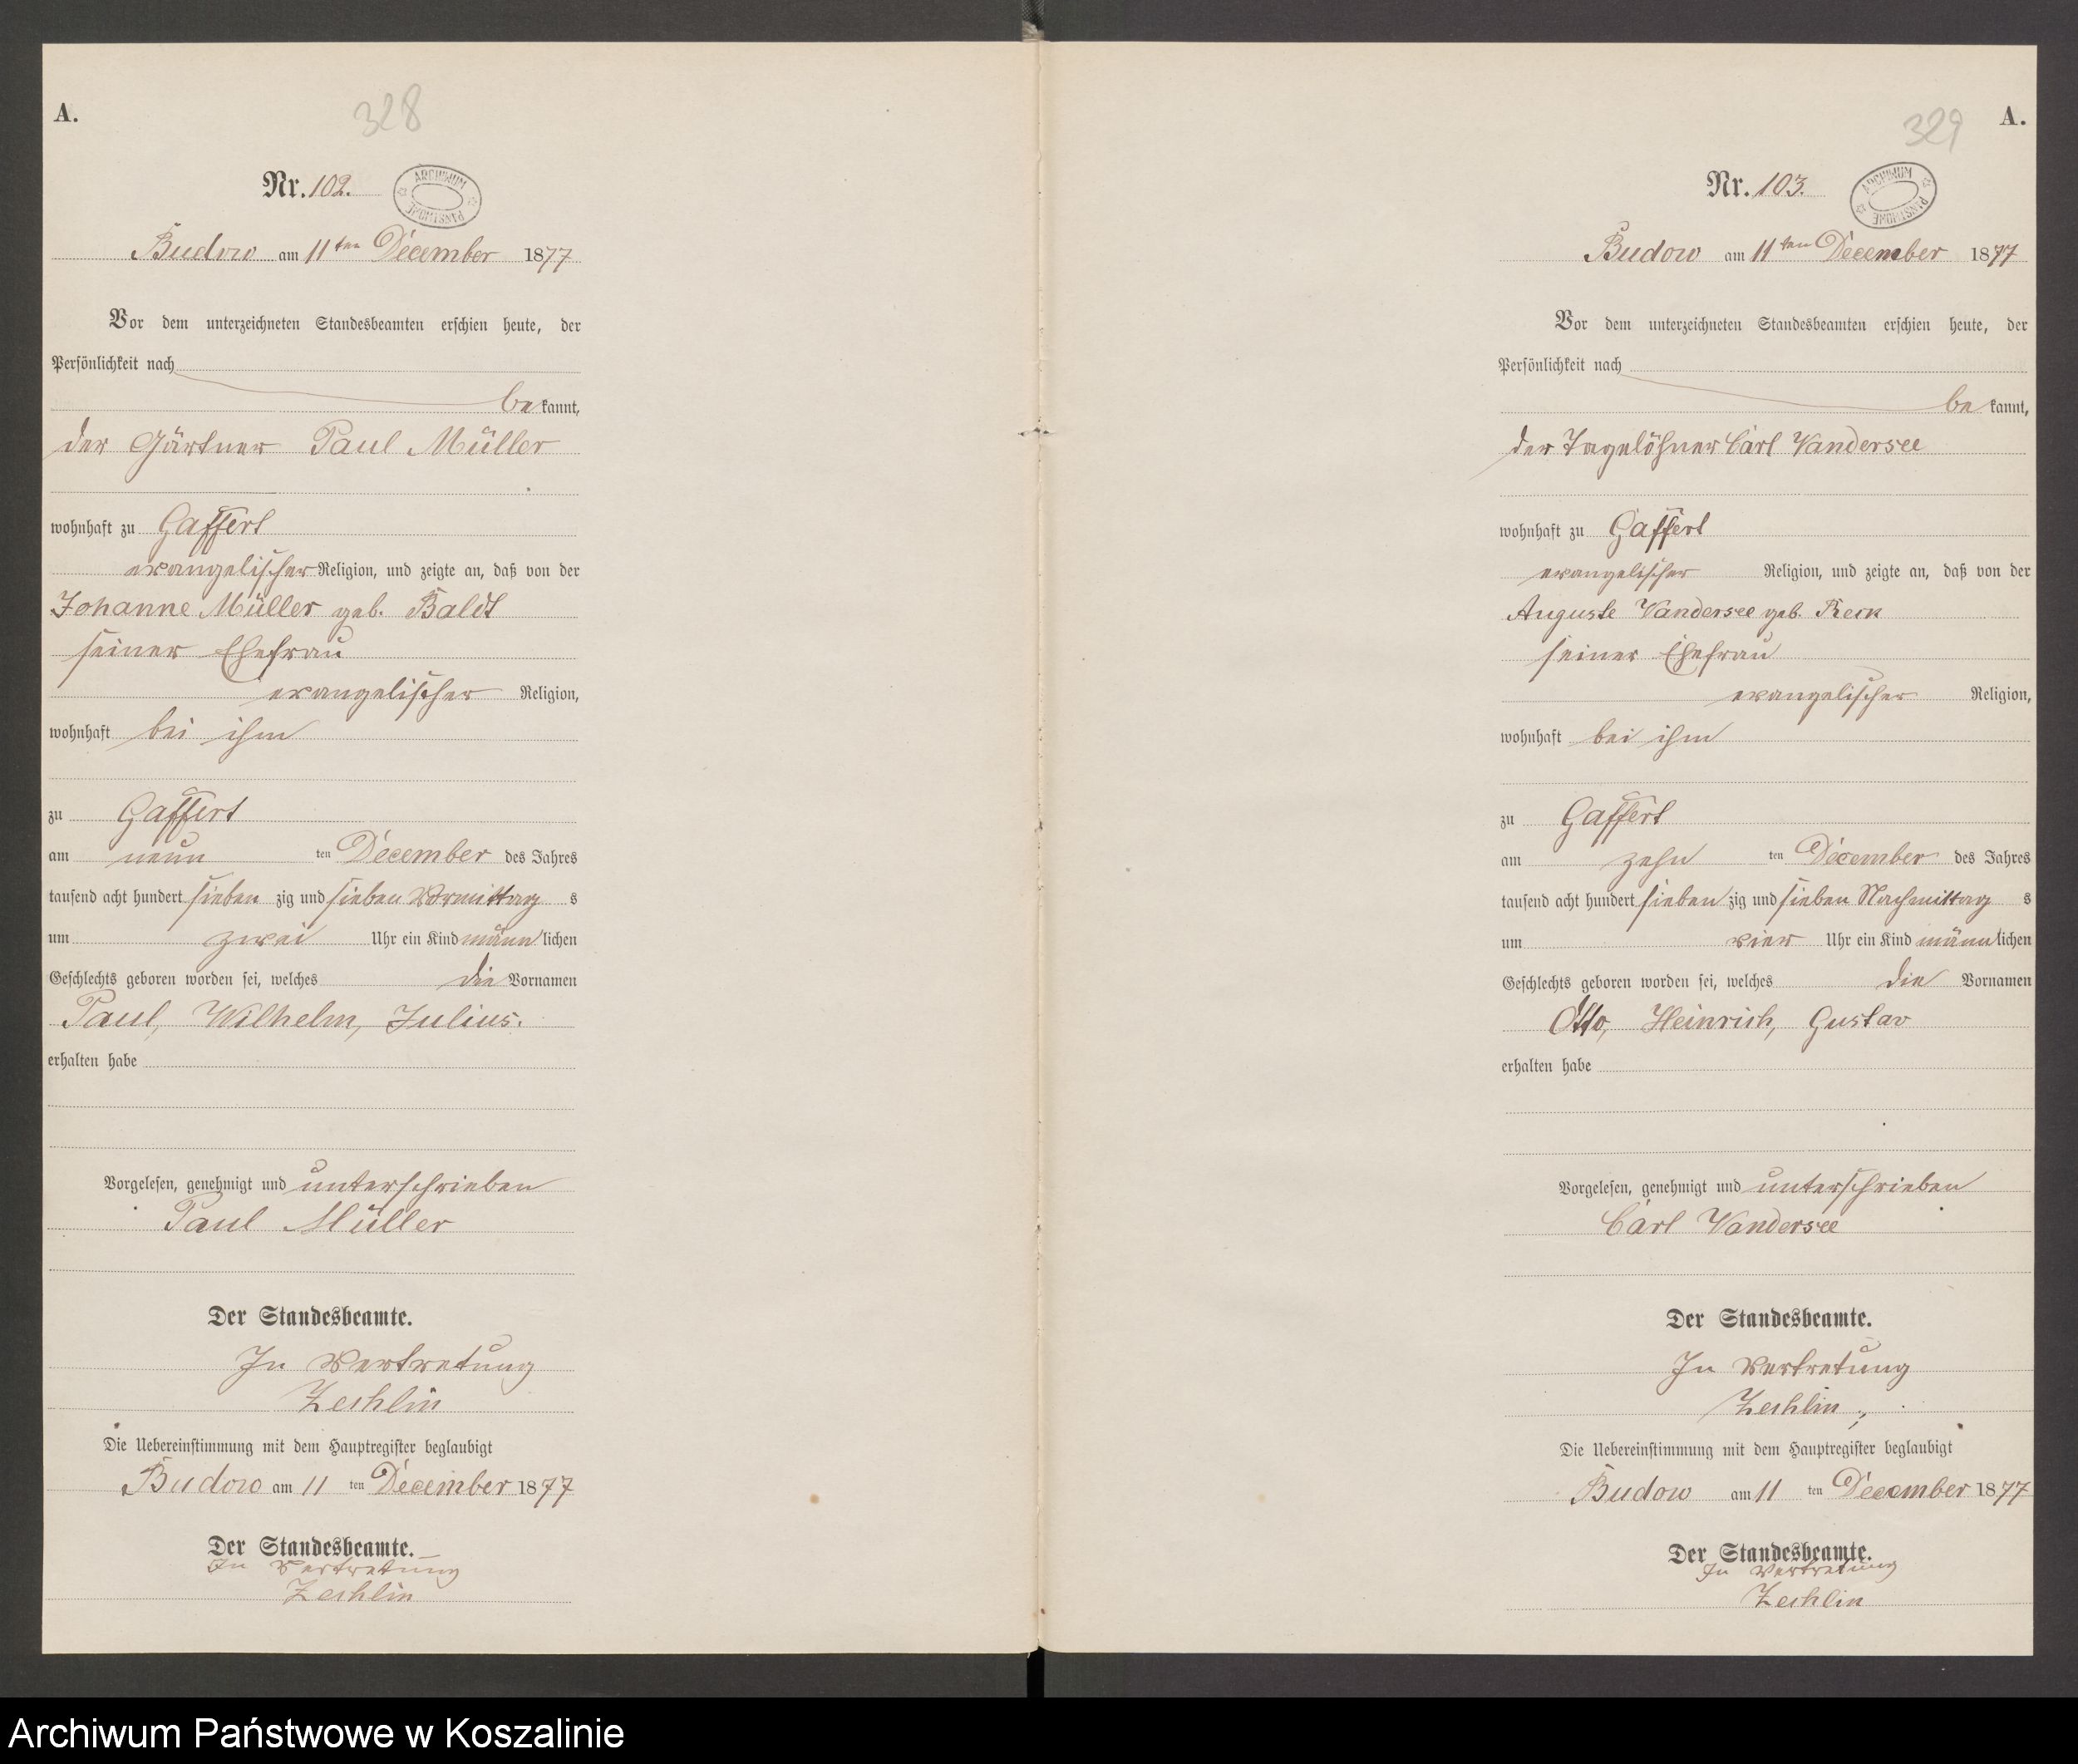 A.
328
Nr. 102.
ARCHIWUM PAŃSTWOWE
Budow am 11ten December 1877
Vor dem unterzeichneten Standesbeamten erschien heute, der
Persönlichkeit nach
bekannt,
der Gärtner Paul Müller
wohnhaft zu Gaffert
evangelischer Religion, und zeigte an, daß von der
Johanne Müller geb. Baldt
seiner Ehefrau
evangelischer Religion,
wohnhaft bei ihm
zu Gaffert
am neun ten December des Jahres
tausend acht hundert sieben zig und sieben Vormittag s
um zwei Uhr ein Kind männlichen
Geschlechts geboren worden sei, welches die Vornamen
Paul, Wilhelm, Julius.
erhalten habe
Vorgelesen, genehmigt und unterschrieben
Paul Müller
Der Standesbeamte.
In Vertretung
Zechlin
Die Uebereinstimmung mit dem Hauptregister beglaubigt
Budow am 11 ten December 1877
Der Standesbeamte.
In Vertretung
Zechlin
329
A.
Nr. 103.
ARCHIWUM PAŃSTWOWE
Budow am 11ten December 1877
Vor dem unterzeichneten Standesbeamten erschien heute, der
Persönlichkeit nach
bekannt,
der Tagelöhner Carl Vandersee
wohnhaft zu Gaffert
evangelischer Religion, und zeigte an, daß von der
Auguste Vandersee geb. Reck
seiner Ehefrau
evangelischer Religion,
wohnhaft bei ihm
zu Gaffert
am zehn ten December des Jahres
tausend acht hundert sieben zig und sieben Nachmittag s
um vier Uhr ein Kind männlichen
Geschlechts geboren worden sei, welches die Vornamen
Otto, Heinrich, Gustav
erhalten habe
Vorgelesen, genehmigt und unterschrieben
Carl Vandersee
Der Standesbeamte.
In Vertretung
Zechlin
Die Uebereinstimmung mit dem Hauptregister beglaubigt
Budow am 11 ten December 1877
Der Standesbeamte.
In Vertretung
Zechlin
Archiwum Państwowe w Koszalinie